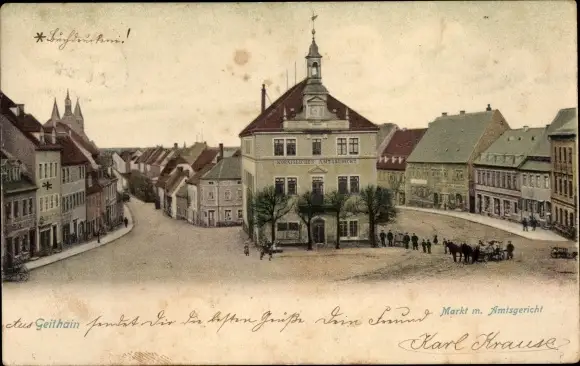 *Buchdruckerei!
KÖNIGLICHES AMTSGERICHT
*
Markt m. Amtsgericht
Aus Geithain sendet Dir die besten Grüße Dein Freund
Karl Krause